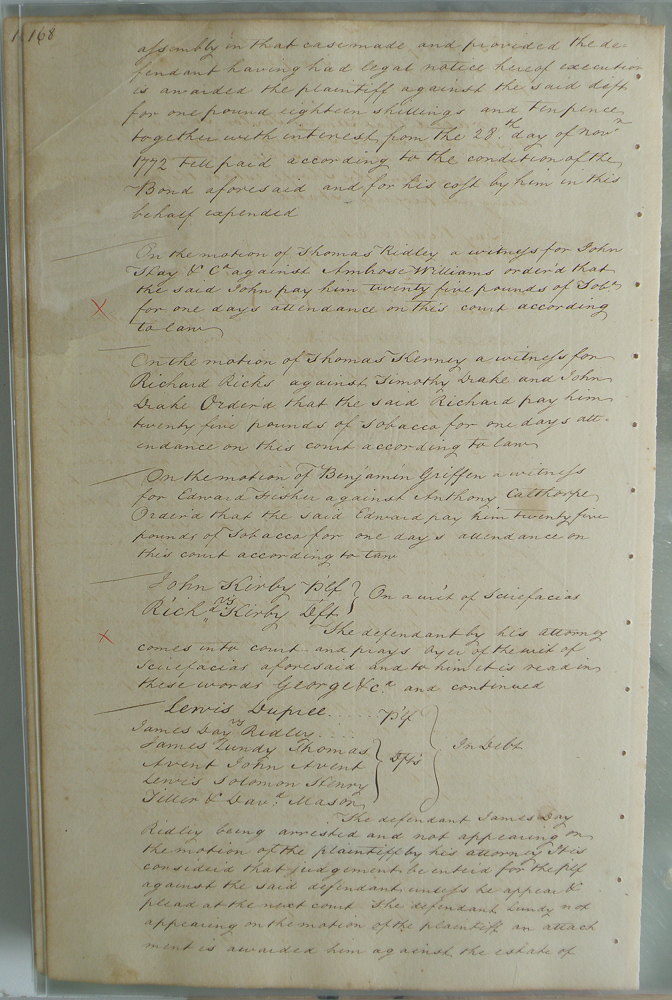 168
assembly in that case made and provided the de
fendant having had legal notice hereof execution
is awarded the plaintiff against the said deft
for one pound eighteen shillings and tenpence
together with interest from the 28th day of Novr
1772 till paid according to the condition of the
Bond aforesaid and for his cost by him in this
behalf expended
On the motion of Thomas Ridley a witness for John
& Ca against Ambrose Williams order'd that
the said John pay him twenty five pounds of Tobo
for one days attendance on this court according
to law
On the motion of Thomas Kerney a witness for
Richard Ricks against Timothy Drake and John
Drake Order'd that the said Richard pay him
twenty five pounds of Tobacco for one days att-
endance on this court according to law
On the motion of Benjamin Griffen a witness
for Edward Fisher against Anthony Calthorpe
Order'd that the said Edward pay him twenty five
pounds of Tobacco for one day's attendance on
this court according to law
John Kirby Plf
vs
Richd Kirby Dft
On a writ of Scirefacias
The defendant by his attorney
comes into court and prays oyer of the writ of
Scirefacias aforesaid and to him it is read in
these words George &ca and continued
Lewis Dupree .... Plf
vs
James Day Ridley ....
James Lundy Thomas
Avent John Avent
Lewis Solomon Henry
Tiller & Davd Mason
Dfts
In Debt
The defendant James Day
Ridley being arrested and not appearing on
the motion of the plaintiff by his attorney It is
consider'd that judgement be enter'd for the plf
against the said defendant unless he appear &
plead at the next court The defendant Lundy not
appearing on the motion of the plaintiff an attach
ment is awarded him against the estate of